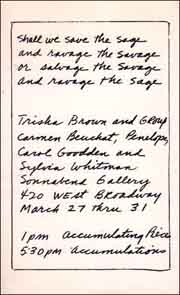 Shall we save the sage
and ravage the savage
or salvage the savage
and ravage the sage
Trisha Brown and Group
Carmen Beuchat, Penelope,
Carol Goodden and
Sylvia Whitman
Sonnabend Gallery
420 West Broadway
March 27 thru 31
1pm Accumulating Pieces
530pm Accumulations